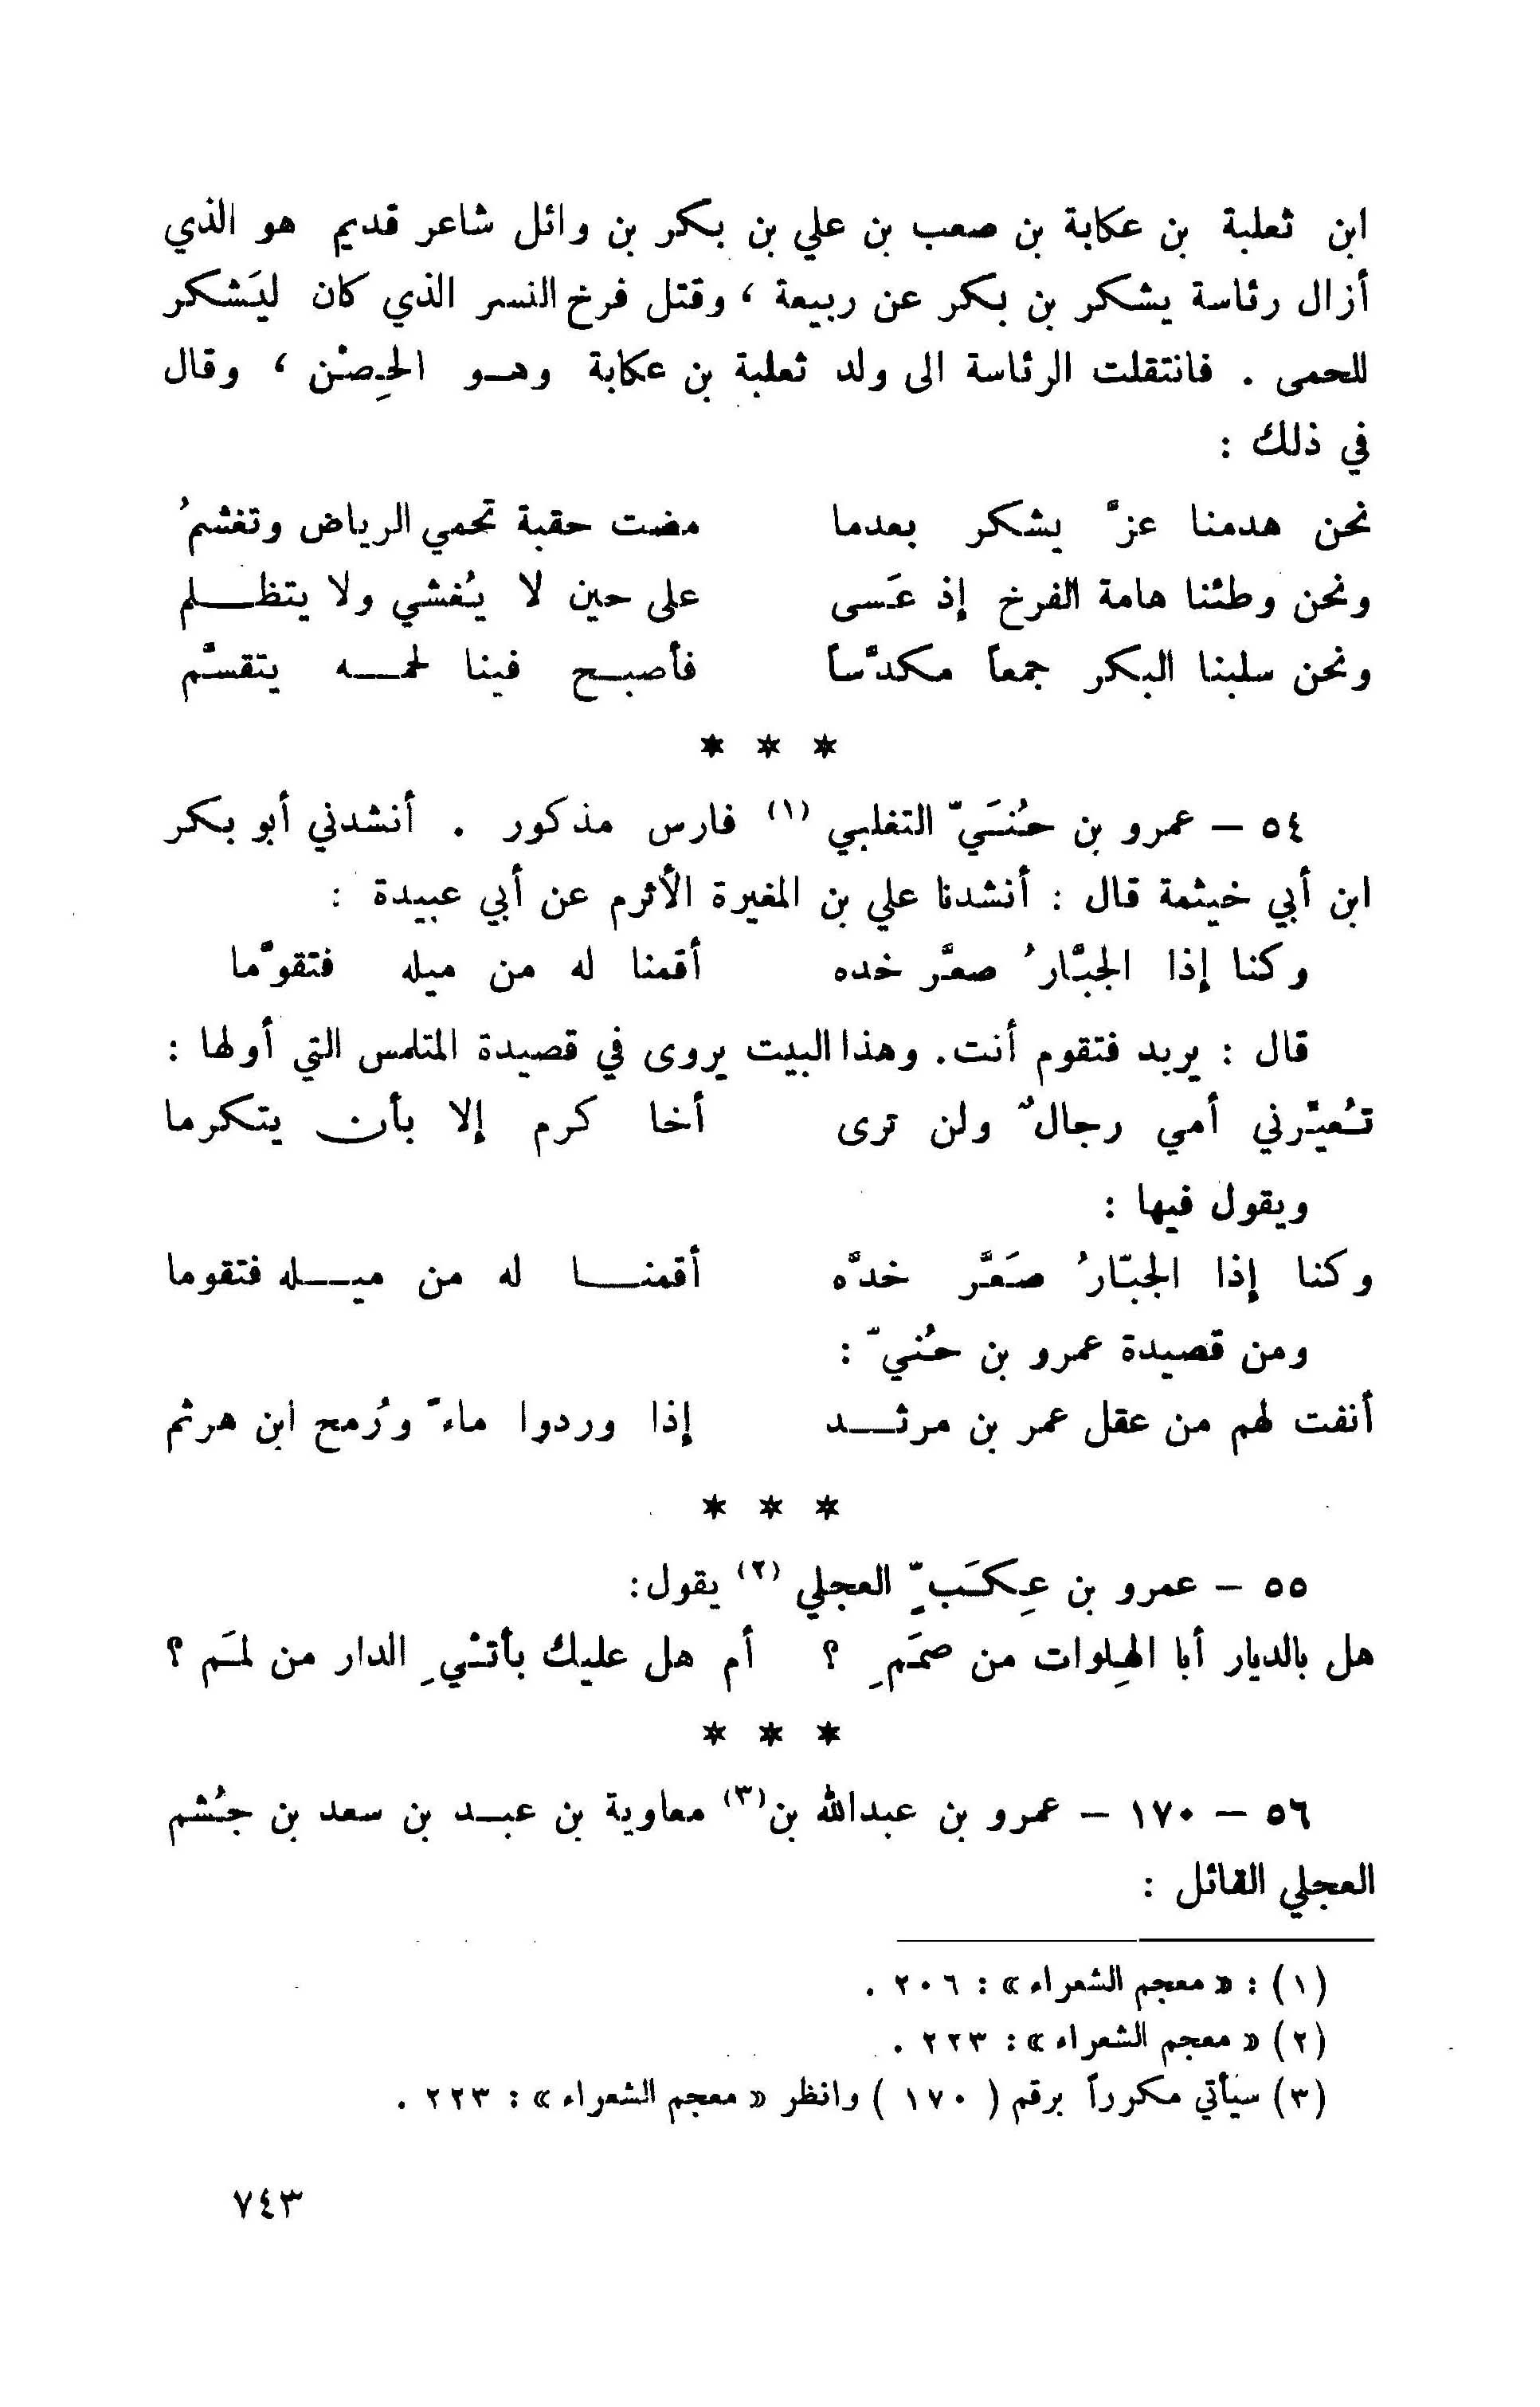 ابن ثعلبة بن عكابة بن صعب بن علي بن بكر بن وائل شاعر قديم هو الذي
أزال رئاسة يشكر بن بكر عن ربيعة ، وقتل فرخ النسر الذي كان ليَشكر
للحمى . فانتقلت الرئاسة الى ولد ثعلبة بن عكابة وهـو الحِصْن ، وقال
في ذلك :
نحن هدمنا عزّ يشكر بعدما مضت حقبة تحمي الرياض وتغشمُ
ونحن وطئنا هامة الفرخ إذ عَسى على حين لا يُغشي ولا يتظـــلم
ونحن سلبنا البكر جمعاً مكدّساً فأصبـح فينا لحمـــه يتقسّم
* * *
٥٤ – عمرو بن حُنَيّ التغلبي (١) فارس مذكور . أنشدني أبو بكر
ابن أبي خيثمة قال : أنشدنا علي بن المغيرة الأثرم عن أبي عبيدة :
وكنا إذا الجبّارُ صعّر خده أقمنا له من ميله فتقوّما
قال : يريد فتقوم أنت. وهذا البيت يروى في قصيدة المتلمس التي أولها :
تُعيّرني أمي رجالٌ ولن ترى أخا كرم إلا بأن يتكرما
ويقول فيها :
وكنا إذا الجبّارُ صَعَّر خدّه أقمنـــا له من ميـــله فتقوما
ومن قصيدة عمرو بن حُنيّ :
أنفت لهم من عقل عمر بن مرثـــد إذا وردوا ماءً ورُمح ابن هرثم
* * *
٥٥ – عمرو بن عِكَبٍّ العجلي (٢) يقول:
هل بالديار أبا الهِلوات من صمَمِ ؟ أم هل عليك بأتْيِ الدار من لمَم ؟
* * *
٥٦ – ١٧٠ – عمرو بن عبدالله بن(٣) معاوية بن عبـد بن سعد بن جُشم
العجلي القائل :
(١) : « معجم الشعراء» : ٢٠٦ .
(٢) « معجم الشعراء» : ٢٢٣ .
(٣) سيأتي مكرراً برقم ( ١٧٠ ) وانظر « معجم الشعراء» : ٢٢٣ .
٧٤٣